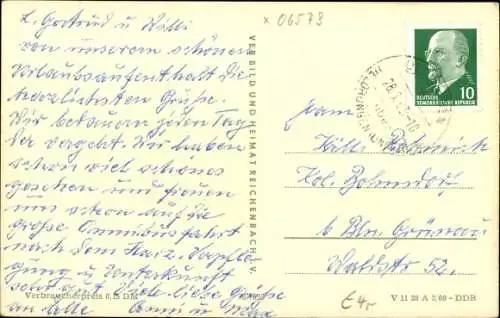 x 06573
L. Gertrud u. Willi
von unserem schönen
Urlaubsaufenthalt die
herzlichsten Grüße.
Wir betreuen jeden Tag
der vergeht. Wir haben
schon viel schönes
gesehen und freuen
uns schon auf die
große Omnibusfahrt
nach dem Harz. Verpfle-
gung u. Unterkunft
sehr gut. Viele liebe Grüße
an alle
Verbraucherpreis 0,15 DM
VERBILD UND HEIMAT REICHENBACH I. V.
DEUTSCHE
DEMOKRATISCHE REPUBLIK
10
Fam.
Willi
Kol. Bohnsdorf
b. Bln. Grünau
Waldstr. 52.
€4,-
V 11 28 A 5/60 - DDR